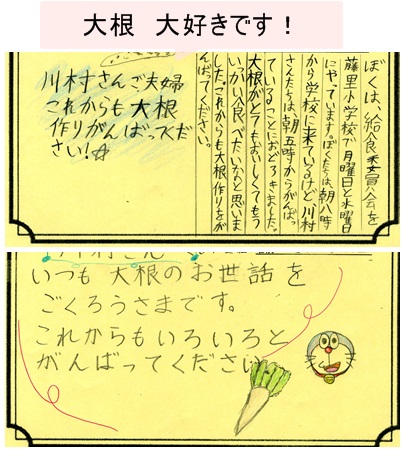 大根 大好きです！
ぼくは、給食委員会を
藤里小学校で月曜日と水曜日
にやっています。ぼくたちは、朝八時
から学校に来ているけど、川村
さんたちは、朝五時からがんばっ
ていることにおどろきました。
大根がとてもおいしくてもう
いっかい食べたいなと思いま
した。これからも大根作りをが
んばってください。
川村さんご夫婦
これからも大根
作りがんばってくだ
さい！☆
いつも大根のお世話を
ごくろうさまです。
これからもいろいろと
がんばってください